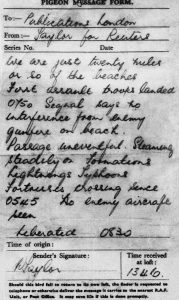 PIGEON MESSAGE FORM.
To:— Publications London
From:— Taylor for Reuters
Series No. Date
We are just twenty miles
or so off the beaches
First assault troops landed
0750 Signal says no
interference from enemy
gunfire on beach.
Passage uneventful. Steaming
steadily on Formations
Lightnings Typhoons
Fortresses crossing since
0545 No enemy aircraft
seen
Liberated 0830
Time of origin:
Sender's Signature: Time received at loft:
Taylor 1346.
Should this bird fall to return to its own loft, the finder is requested to
telephone or otherwise deliver the message it carries to the nearest R.A.F.
Unit, or Post Office. It may save life if this is done promptly.